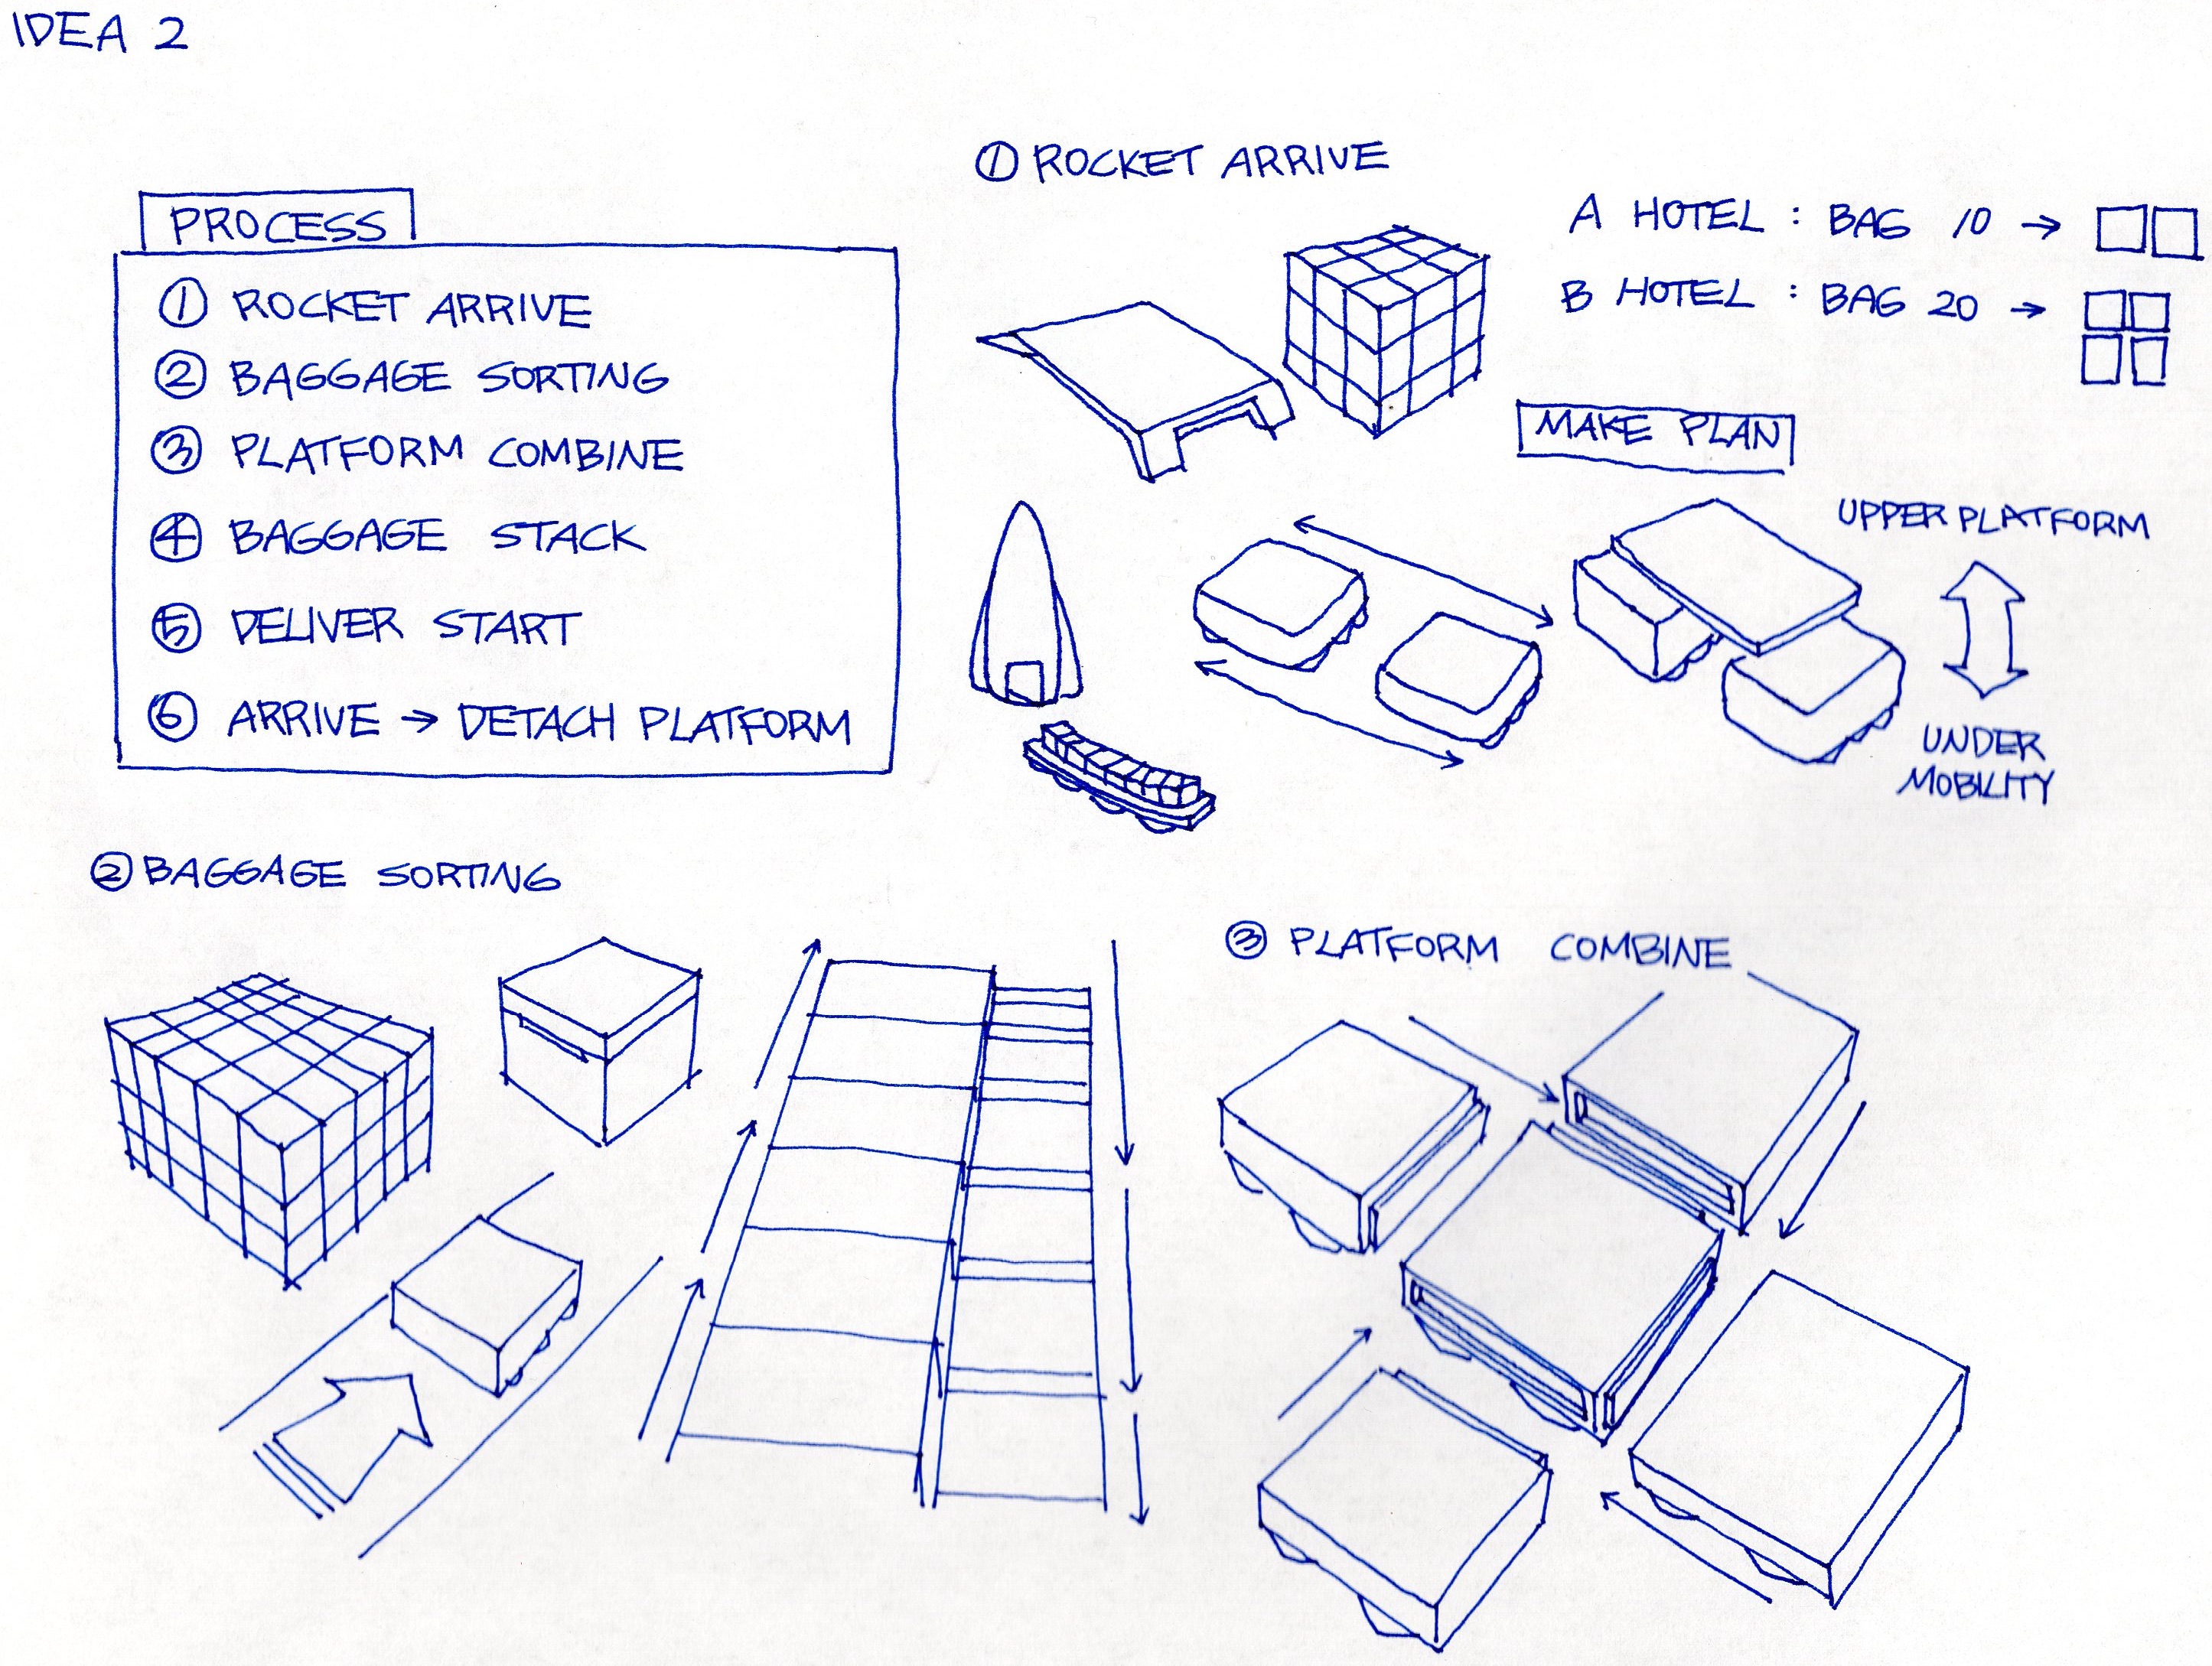 IDEA 2
PROCESS
① ROCKET ARRIVE
② BAGGAGE SORTING
③ PLATFORM COMBINE
④ BAGGAGE STACK
⑤ DELIVER START
⑥ ARRIVE → DETACH PLATFORM
① ROCKET ARRIVE
A HOTEL : BAG 10 →
B HOTEL : BAG 20 →
MAKE PLAN
UPPER PLATFORM
UNDER
MOBILITY
② BAGGAGE SORTING
③ PLATFORM COMBINE